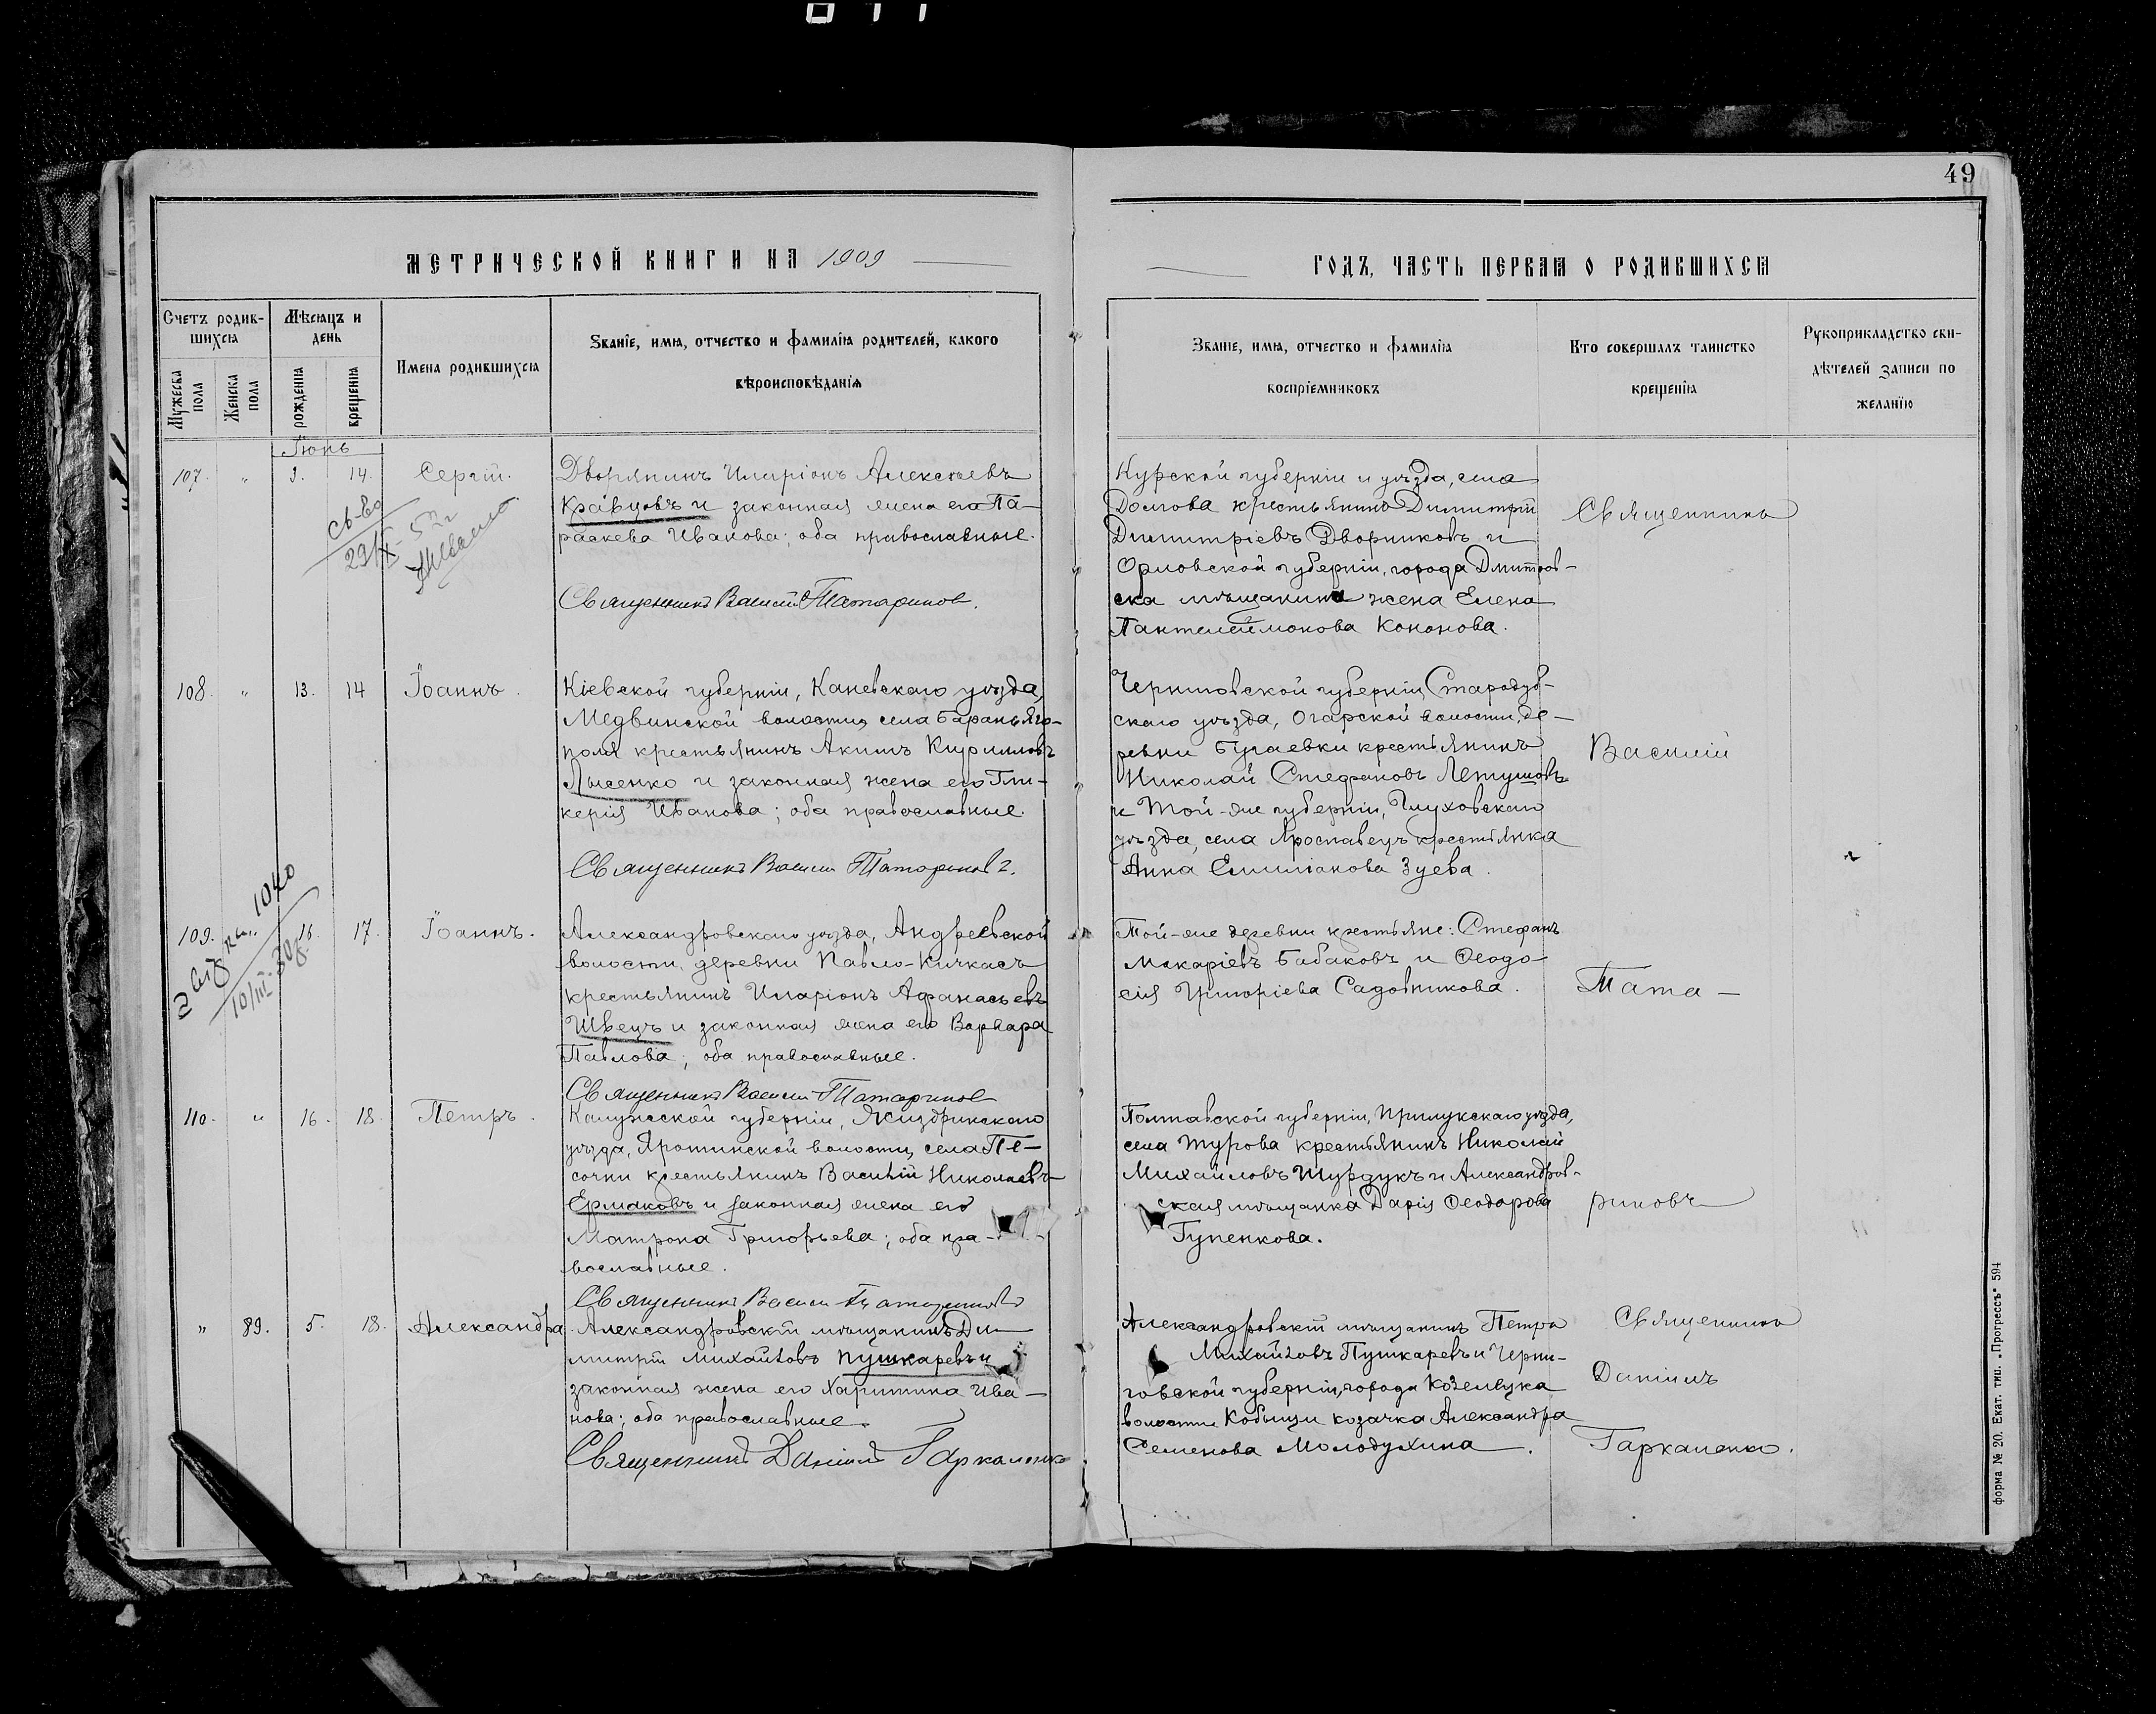 49
МЕТРИЧЕСКОЙ КНИГИ НА 1909
ГОДЪ, ЧАСТЬ ПЕРВАЯ О РОДИВШИХСЯ
Счетъ родив-
шихся
Мѣсяцъ и
день
Имена родившихся
Званіе, имя, отчество и фамилія родителей, какого
вѣроисповѣданія
Мужеска
пола
Женска
пола
рожденія
крещенія
Званіе, имя, отчество и фамилія
воспріемниковъ
Кто совершалъ таинство
крещенія
Рукоприкладство сви-
дѣтелей записи по
желанію
Іюнь
107. " 3. 14. Сергій.
Дворянинъ Иларіонъ Алексѣевъ
Кравцовъ и законная жена его Па-
раскева Иванова; оба православные.
Священникъ Василій Татариновъ.
св-во
29/IX
Курской губерніи и уѣзда, села
Долгова крестьянинъ Димитрій
Димитріевъ Дворниковъ и
Орловской губерніи, города Дмитров-
ска мѣщанина жена Елена
Пантелеймонова Кононова.
Священникъ
108. " 13. 14 Іоаннъ.
Кіевской губерніи, Каневскаго уѣзда,
Медвинской волости, села Бараньяго-
поля крестьянинъ Акимъ Кирилловъ
Лысенко и законная жена его Гли-
керія Иванова; оба православные.
Священникъ Василій Татариновъ.
Черниговской губерніи, Стародуб-
скаго уѣзда, Огарской волости, де-
ревни Бугаевки крестьянинъ
Николай Стефановъ Летушовъ
и той-же губерніи, Глуховскаго
уѣзда, села Ярославецъ крестьянка
Анна Емиліанова Зуева.
Василій
109. " 16. 17. Іоаннъ.
1040
10/III 30г.
Александровскаго уѣзда, Андреевской
волости, деревни Павло-Кичкасъ
крестьянинъ Иларіонъ Афанасьевъ
Швецъ и законная жена его Варвара
Павлова; оба православные.
Священникъ Василій Татариновъ
Той-же деревни крестьяне: Стефанъ
Макаріевъ Бабаковъ и Ѳеодо-
сія Григоріева Садовникова.
Тата-
110. " 16. 18. Петръ.
Калужской губерніи, Жиздринскаго
уѣзда, Яротинской волости, села Пе-
сочни крестьянинъ Василій Николаевъ
Ермаковъ и законная жена его
Матрона Григорьева; оба пра-
вославные.
Священникъ Василій Татариновъ
Полтавской губерніи, Прилукскаго уѣзда,
села Турова крестьянинъ Николай
Михайловъ Шурдукъ и Александров-
ская мѣщанка Дарія Ѳеодорова
Гупенкова.
риновъ
" 89. 5. 18. Александра
Александровскій мѣщанинъ Ди-
митрій Михайловъ Пушкаревъ и
законная жена его Харитина Ива-
нова; оба православные.
Священникъ Даніилъ Гаркаленко
Александровскій мѣщанинъ Петръ
Михайловъ Пушкаревъ и Черни-
говской губерніи, города Козельцка
волости Кобыщи козачка Александра
Семенова Молодухина.
Священникъ
Даніилъ
Гаркаленко.
форма № 20. Екат. тип. „Прогрессъ" 594